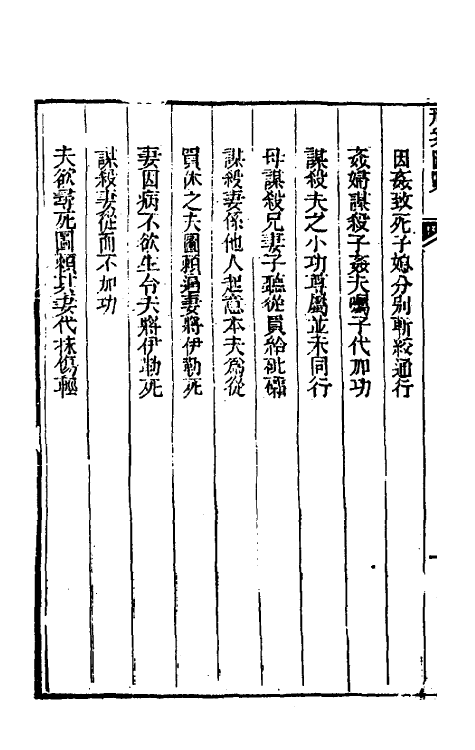 因姦致死子媳分別斬絞通行
姦婦謀殺子姦夫囑子代加功
謀殺夫之小功尊屬並未同行
母謀殺兄妻子聽從買給砒礵
謀殺妻係他人起意本夫為從
買休之夫圖賴逼妻將伊勒死
妻因病不欲生合夫將伊勒死
謀殺妻從而不加功
夫欲尋死圖賴其妻代抹傷輕